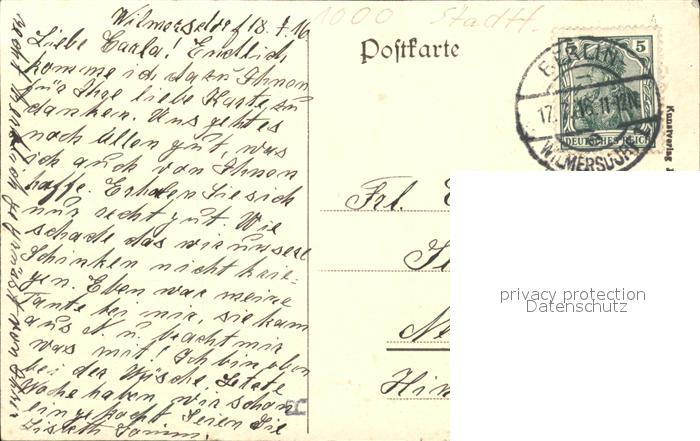 Wilmersdorf 18. 7. 16
Liebe Carla! Endlich
komme ich dazu Ihnen
für Ihre liebe Karte zu
danken. Uns geht es
noch allen gut, was
ich auch von Ihnen
hoffe. Erholen Sie sich
nur recht gut. Wie
schade das wir unsere
Schinken nicht krie-
gen. Eben war meine
Tante bei mir, sie kam
aus N. u. bracht mir
was mit! Ich bin eben
bei der Wäsche. Letzte
Woche haben wir schon
eingekocht. Seien Sie
recht herzlich gegrüßt von Ihrer
Lisbeth
1000 Stadtt.
Postkarte
BERLIN
17. 7. 16. 11-12N.
WILMERSDORF
5 5
DEUTSCHES REICH
Kunstverlag
Frl.
Hin
privacy protection
Datenschutz